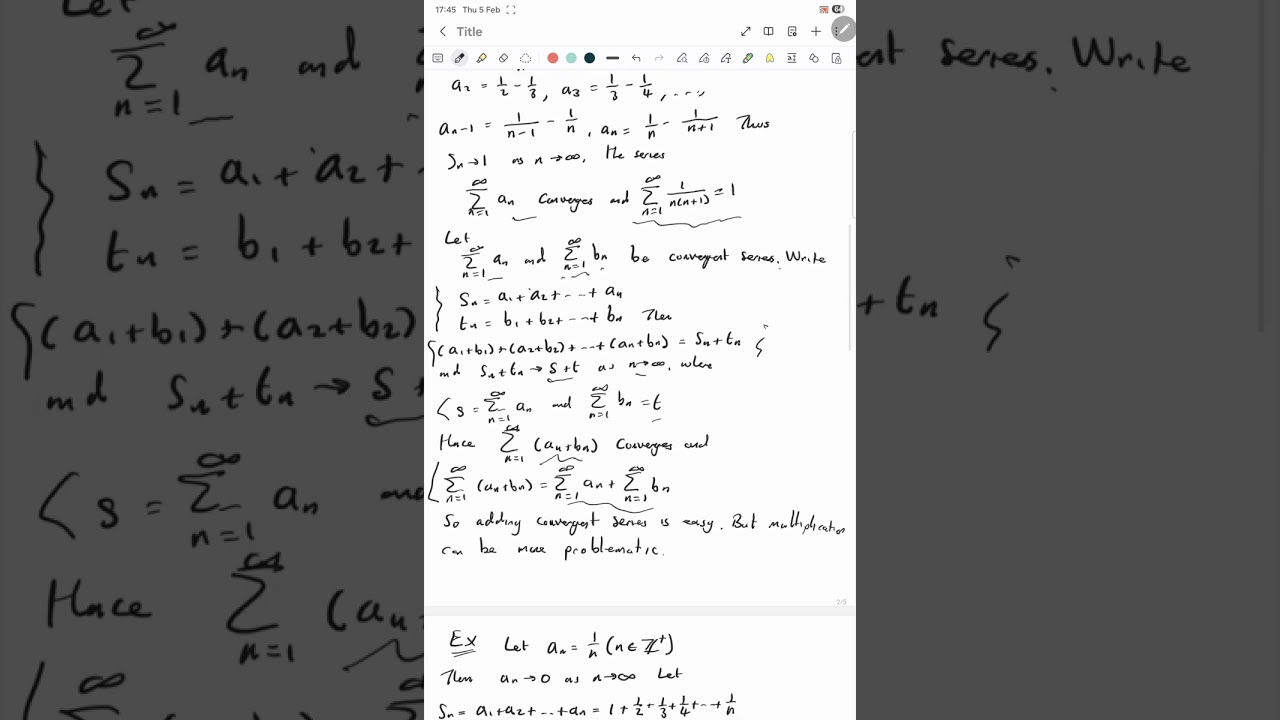 17:45 Thu 5 Feb
64
Title
a₂ = 1/2 - 1/3, a₃ = 1/3 - 1/4, ...,
aₙ₋₁ = 1/(n-1) - 1/n, aₙ = 1/n - 1/(n+1) Thus
Sₙ → 1 as n → ∞. The series
∑_{n=1}^∞ aₙ converges and ∑_{n=1}^∞ 1/(n(n+1)) = 1
Let
∑_{n=1}^∞ aₙ and ∑_{n=1}^∞ bₙ be convergent series. Write
Sₙ = a₁ + a₂ + ... + aₙ
tₙ = b₁ + b₂ + ... + bₙ Then
(a₁+b₁) + (a₂+b₂) + ... + (aₙ+bₙ) = Sₙ + tₙ
and Sₙ + tₙ → S + t as n → ∞, where
s = ∑_{n=1}^∞ aₙ and ∑_{n=1}^∞ bₙ = t
Hence ∑_{n=1}^∞ (aₙ+bₙ) converges and
∑_{n=1}^∞ (aₙ+bₙ) = ∑_{n=1}^∞ aₙ + ∑_{n=1}^∞ bₙ
So adding convergent series is easy. But multiplication
can be more problematic.
2/5
Ex Let aₙ = 1/n (n ∈ ℤ⁺)
Then aₙ → 0 as n → ∞ Let
Sₙ = a₁ + a₂ + ... + aₙ = 1 + 1/2 + 1/3 + 1/4 + ... + 1/n